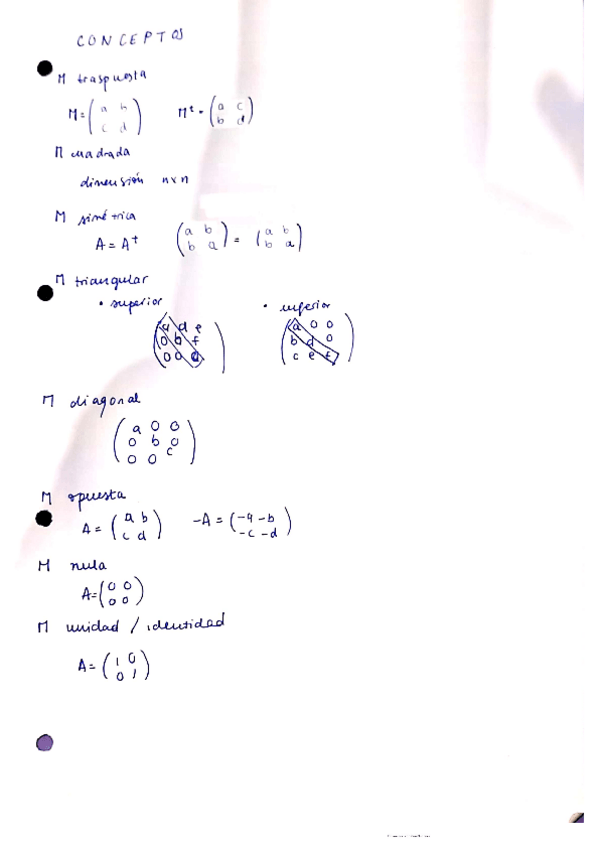 CONCEPTOS
M traspuesta
M = (a b) Mᵗ = (a c)
(c d) (b d)
M cuadrada
dimensión n x n
M simétrica
A = Aᵗ (a b) = (a b)
(b a) (b a)
M triangular
• superior • inferior
(a d e) (a 0 0)
(0 b f) (b d 0)
(0 0 ) (c e f)
M diagonal
(a 0 0)
(0 b 0)
(0 0 c)
M opuesta
A = (a b) -A = (-a -b)
(c d) (-c -d)
M nula
A = (0 0)
(0 0)
M unidad / identidad
A = (1 0)
(0 1)